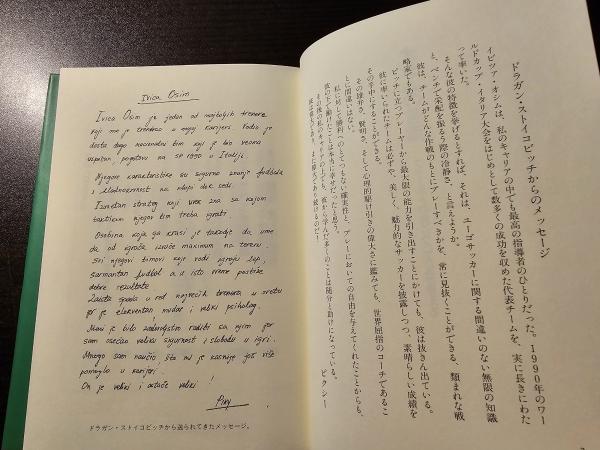 Ivica Osim
Ivica Osim je jedan od najboljih trenera
koji me je trenirao u mojoj karijeri. Vodio je
dosta dugo nacionalni tim koji je bio veoma
uspešan, pogotovu na SP 1990 u Italiji.
Njegove karakteristike su sigurno znanje fudbala
i hladnokrvnost na klupi dok sedi.
Izvrstan strateg koji uvek zna sa kojom
taktikom njegov tim treba igrati.
Osobina koja ga krasi je takodje da ume
da od igrača izvuče maximum na terenu.
Svi njegovi timovi koje vodi igraju lep,
šarmantan fudbal a u isto vreme postižu
dobre rezultate.
Zaista spada u red najvećih trenera u svetu
jer je elekventan mudar i veliki psiholog.
Meni je bilo zadovoljstvo raditi sa njim jer
sam osećao veliku sigurnost i slobodu u igri.
Mnogo sam naučio, što mi je kasnije još više
pomoglo u karijeri.
On je veliki i ostaće veliki!
Pixy
ドラガン・ストイコビッチから送られてきたメッセージ。
ドラガン・ストイコビッチからのメッセージ
イビツァ・オシムは、私のキャリアの中でも最高の指導者のひとりだった。1990年のワー
ルドカップ・イタリア大会をはじめとして数多くの成功を収めた代表チームを、実に長きにわた
って率いた。
そんな彼の特徴を挙げるとすれば、それは、ユーゴサッカーに関する間違いのない無限の知識
と、ベンチで采配を振るう際の冷静さ、と言えようか。
彼は、チームがどんな作戦のもとにプレーすべきかを、常に見抜くことができる、類まれな戦
略家でもある。
ピッチに立つプレーヤーから最大限の能力を引き出すことにかけても、彼は抜きん出ている。
彼に率いられたチームは必ずや、美しく、魅力的なサッカーを披露しつつ、素晴らしい成績を
その手中にすることができる。
その雄弁さ、賢明さ、そして心理的駆け引きの偉大さに鑑みても、世界屈指のコーチであるこ
とに間違いはない。
私に対して勝利へのとてつもない確実性と、プレーにおいての自由を与えてくれたことからも、
彼の下で働けたことは本当に幸せだったと思う。
その後の私のキャリアの上でも、彼から学んだ多くのことは随分と助けになっている。
ピクシー